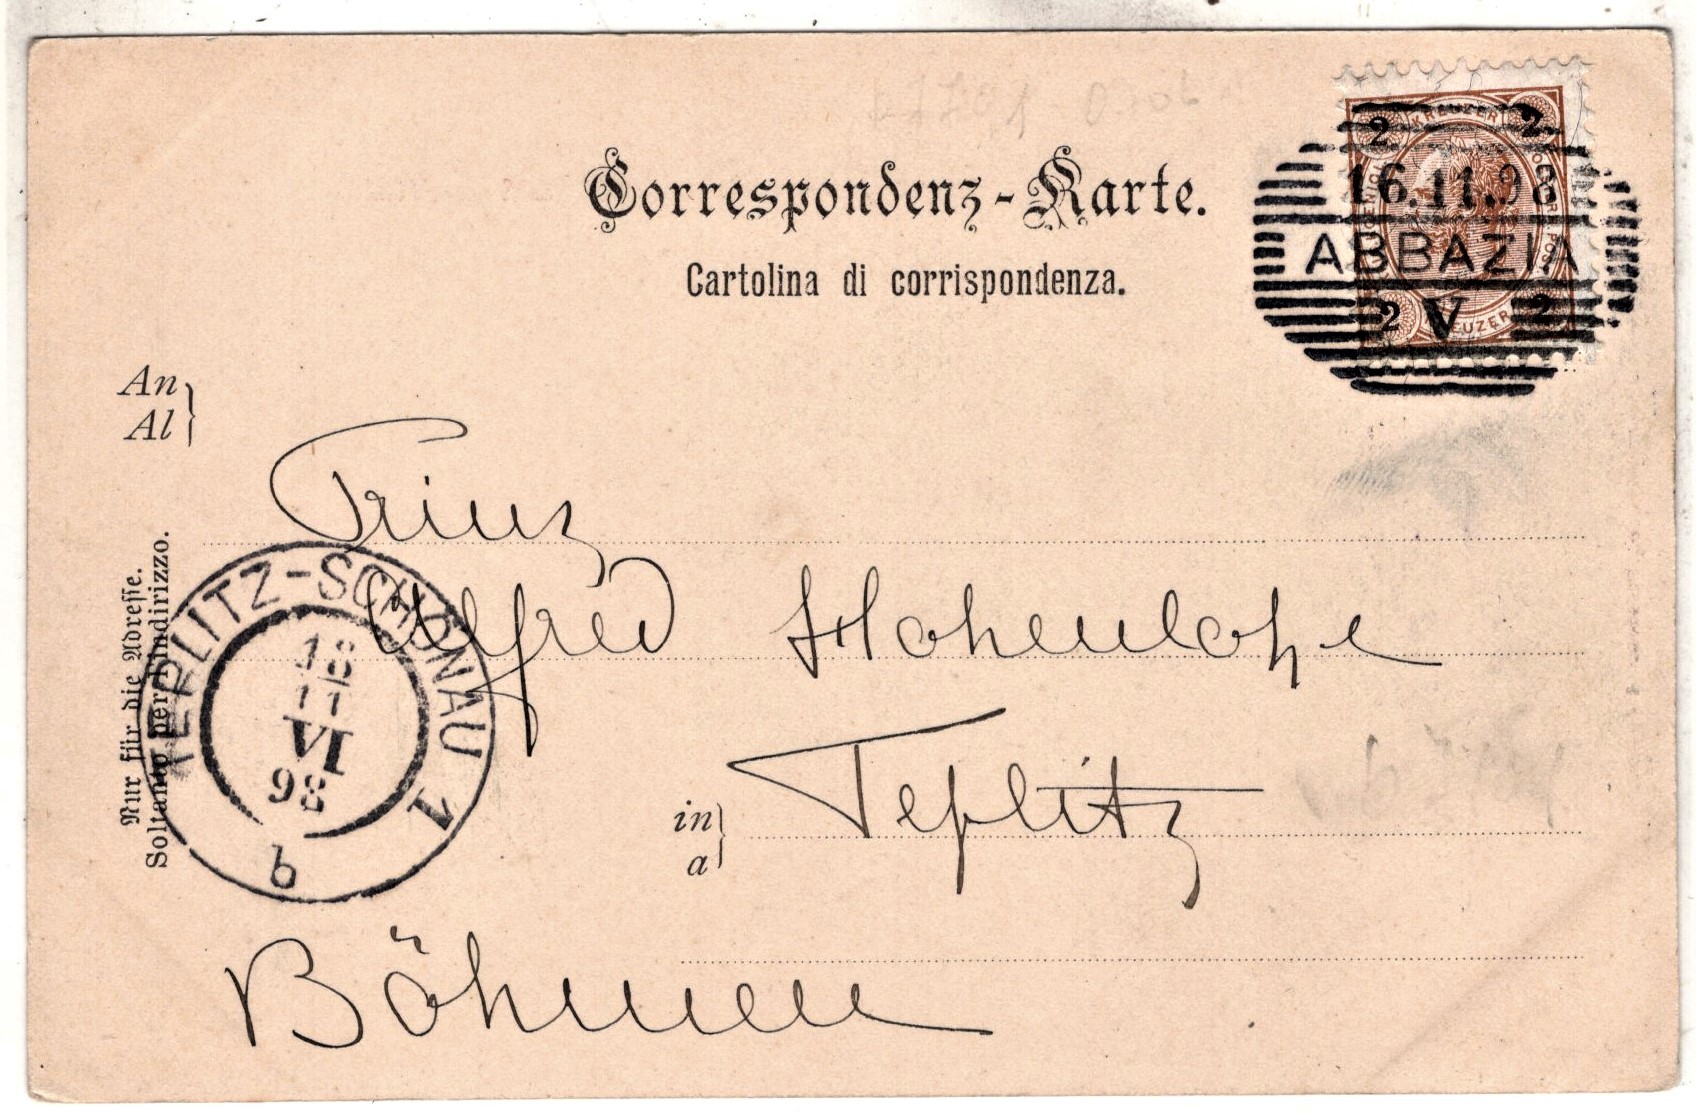 Correspondenz-Karte.
Cartolina di corrispondenza.
2 KREUZER 2
16.11.98
ABBAZIA
2 V 2
KREUZER
An
Al
Prinz
Alfred Hohenlohe
in
a
Teplitz
Böhmen
Nur für die Adresse.
Soltanto per l'indirizzo.
TEPLITZ-SCHÖNAU 1
18
11
VI
98
b